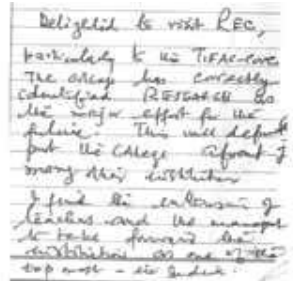 Delighted to visit REC,
particularly to the TIFAC-core
The college has correctly
identified RESEARCH as
the major effort for the
future. This will
put the College
among other institution
I find the enthusiasm of
teachers and the
to take forward the
institution as one of the
top most - in India.